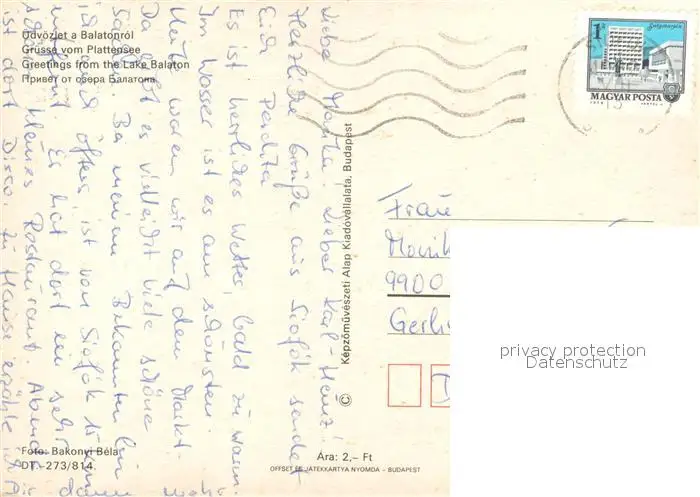 Üdvözlet a Balatonról
Grüsse vom Plattensee
Greetings from the Lake Balaton
Привет от озера Балатона
Liebe Marika! Lieber Karl-Heinz!
Herzliche Grüße aus Siofok sendet
Euch Perdita
Es ist herrliches Wetter, bald zu warm.
Im Wasser ist es am schönsten.
Heute waren wir auf dem Markt.
Da gibt es vielleicht viele schöne
Ba meinem Bekannten bin
ich öfters ist von Siofok 15 km
entfernt. Es ist dort ein sehr
schönes kleines Restaurant. Abends
ist dort Disco. Zu Hause
dann
Foto: Bakonyi Béla
DT-273/814.
© Képzőművészeti Alap Kiadóvállalata, Budapest
Ára: 2,– Ft
OFFSET ÉS JÁTÉKKÁRTYA NYOMDA – BUDAPEST
1Ft
Salgótarján
MAGYAR POSTA
Frau
9900
D
privacy protection
Datenschutz